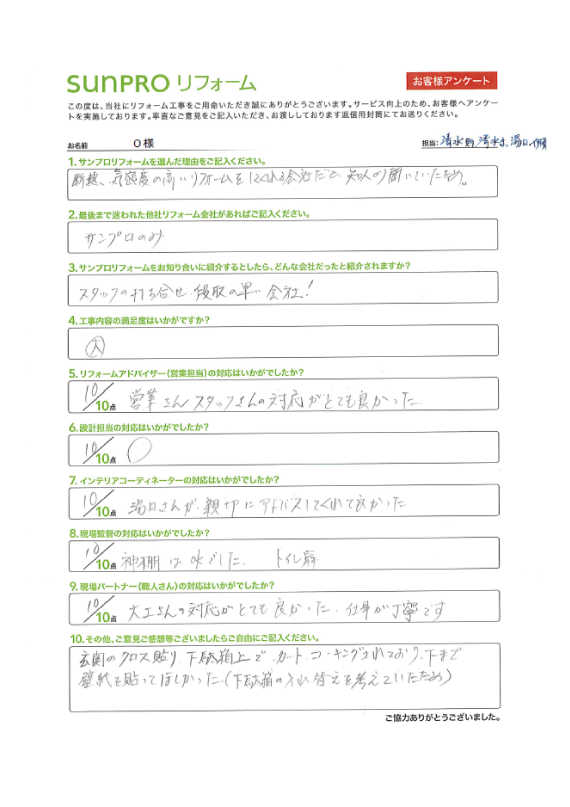 sunPRO リフォーム
お客様アンケート
この度は、当社にリフォーム工事をご用命いただき誠にありがとうございます。サービス向上のため、お客様へアンケー
トを実施しております。率直なご意見をご記入いただき、お渡ししております返信用封筒にてお送りください。
お名前 O 様 担当: 清水 清水 湯口
1.サンプロリフォームを選んだ理由をご記入ください。
断熱、気密度の高いリフォームをしてくれる会社だと、知人より聞いていたため。
2.最後まで迷われた他社リフォーム会社があればご記入ください。
サンプロのみ
3.サンプロリフォームをお知り合いに紹介するとしたら、どんな会社だったと紹介されますか?
スタッフの打ち合せ、段取の早い会社!
4.工事内容の満足度はいかがですか?
大
5.リフォームアドバイザー(営業担当)の対応はいかがでしたか?
10/10点 営業さん スタッフさんの対応がとても良かった
6.設計担当の対応はいかがでしたか?
10/10点 〇
7.インテリアコーディネーターの対応はいかがでしたか?
10/10点 湯口さんが、親切にアドバスしてくれて良かった
8.現場監督の対応はいかがでしたか?
10/10点 神棚は でした. トイレ
9.現場パートナー(職人さん)の対応はいかがでしたか?
10/10点 大工さんの対応がとても良かった. 仕事が丁寧です
10.その他、ご意見ご感想等ございましたらご自由にご記入ください。
玄関のクロス貼り、下駄箱上で、カット、コーキングされており、下まで
壁紙を貼ってほしかった.(下駄箱の入れ替えを考えていたため)
ご協力ありがとうございました。